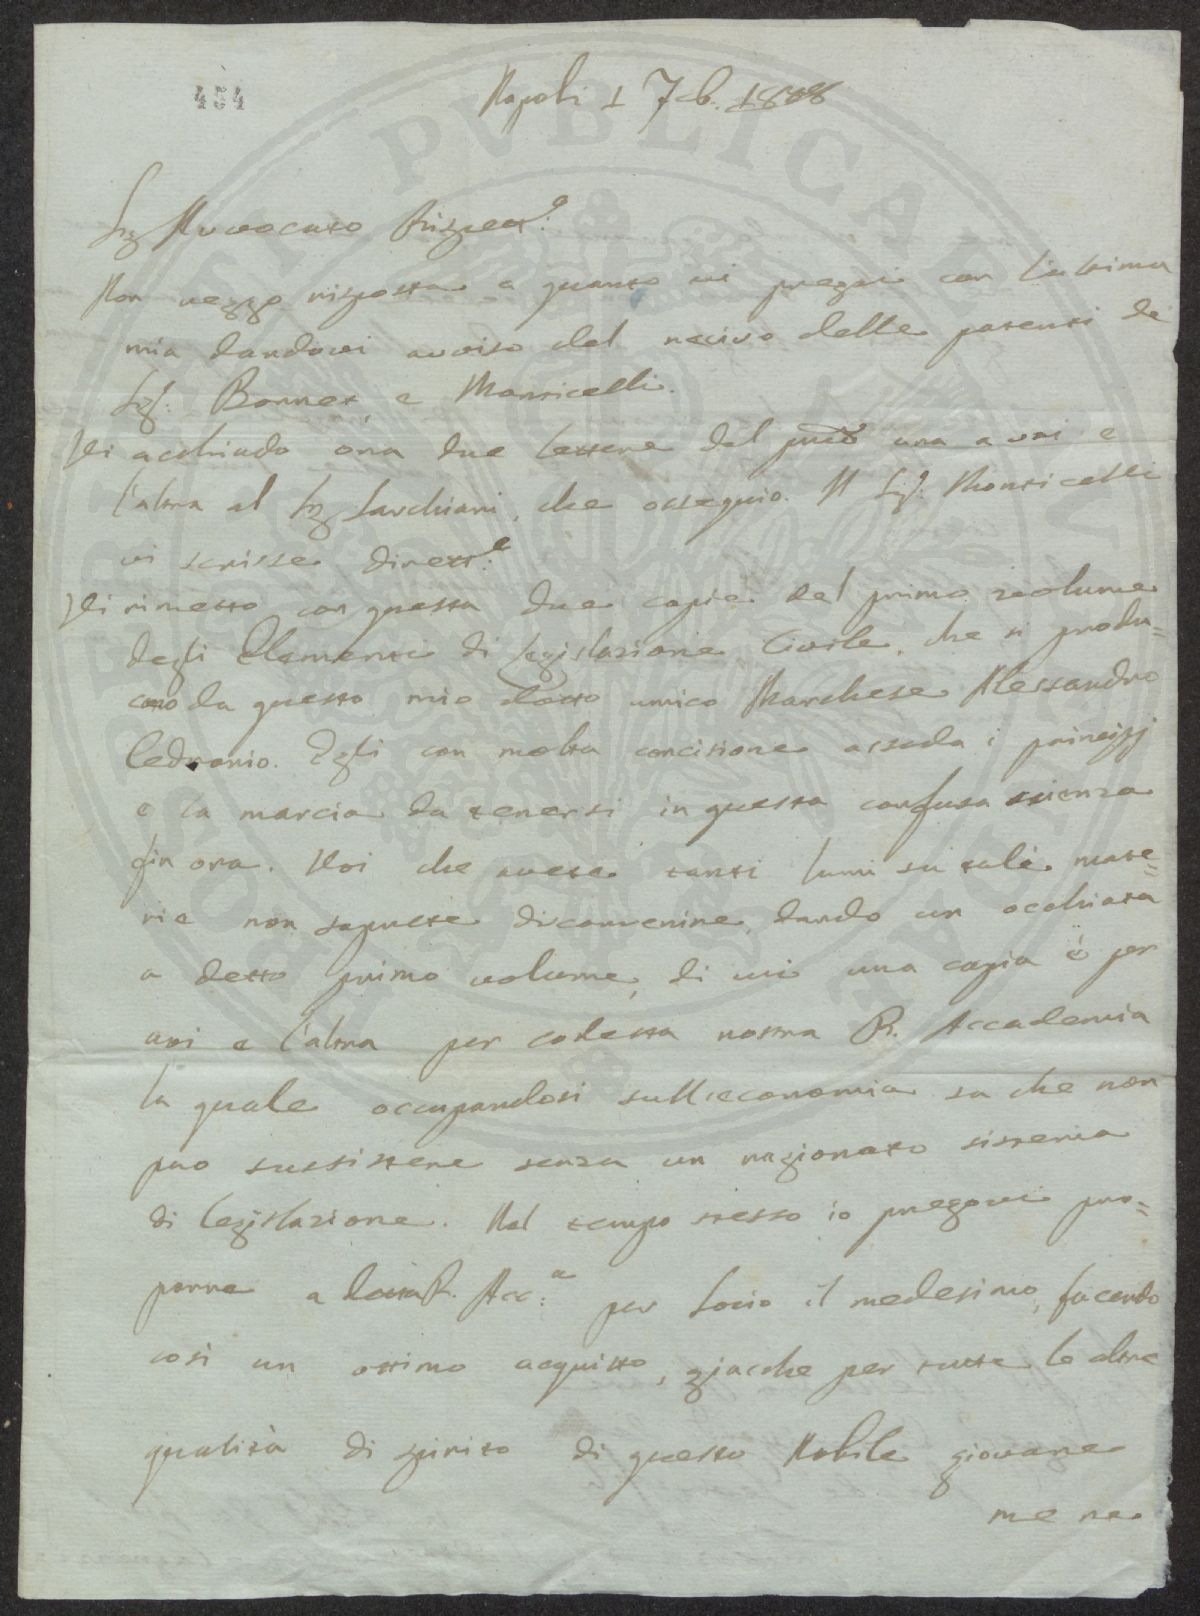 454
Napoli 1 7b. 1808
Sig Avvocato Rispett.e
Non veggo risposta a quanto vi pregai con l'ultima
mia dandovi avviso del recivo delle patenti de
Sig.i Bonnet, e Monticelli.
Vi acchiudo ora due lettere del pmo una a voi e
l'altra al Sig Sarchiani, che ossequio. Il Sig. Monticelli
vi scrisse dirett.e
Vi rimetto con questa due copie del primo volume
degli Elementi di Legislazione Civile, che si produ=
cono da questo mio dotto amico Marchese Alessandro
Cedronio. Egli con molta concisione assoda i principj
e la marcia da tenersi in questa confusa scienza
fin ora. Voi che avete tanti lumi su tale mate=
ria non saprete disconvenire, dando un occhiata
a detto primo volume, di cui una copia è per
voi e l'altra per codesta nostra R. Accademia
la quale occupandosi sull'economia sa che non
puo sussistere senza un ragionato sistema
di legislazione. Nel tempo stesso io pregovi pro=
porre a codesta R. Acc.a per Socio il medesimo, facendo
così un ottimo acquisto, giacche per tutte le altre
qualità di spirito di questo Nobile giovane
me ne